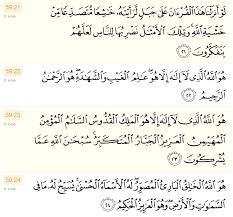 59:21
لَوْ أَنزَلْنَا هَٰذَا الْقُرْءَانَ عَلَىٰ جَبَلٍ لَّرَأَيْتَهُ خَٰشِعًا مُّتَصَدِّعًا مِّنْ
خَشْيَةِ اللَّهِ وَتِلْكَ الْأَمْثَٰلُ نَضْرِبُهَا لِلنَّاسِ لَعَلَّهُمْ
يَتَفَكَّرُونَ ٢١
59:22
هُوَ اللَّهُ الَّذِي لَا إِلَٰهَ إِلَّا هُوَ عَٰلِمُ الْغَيْبِ وَالشَّهَٰدَةِ هُوَ الرَّحْمَٰنُ
الرَّحِيمُ ٢٢
59:23
هُوَ اللَّهُ الَّذِي لَا إِلَٰهَ إِلَّا هُوَ الْمَلِكُ الْقُدُّوسُ السَّلَٰمُ الْمُؤْمِنُ
الْمُهَيْمِنُ الْعَزِيزُ الْجَبَّارُ الْمُتَكَبِّرُ سُبْحَٰنَ اللَّهِ عَمَّا
يُشْرِكُونَ ٢٣
59:24
هُوَ اللَّهُ الْخَٰلِقُ الْبَارِئُ الْمُصَوِّرُ لَهُ الْأَسْمَاءُ الْحُسْنَىٰ يُسَبِّحُ لَهُ مَا فِي
السَّمَٰوَٰتِ وَالْأَرْضِ وَهُوَ الْعَزِيزُ الْحَكِيمُ ٢٤